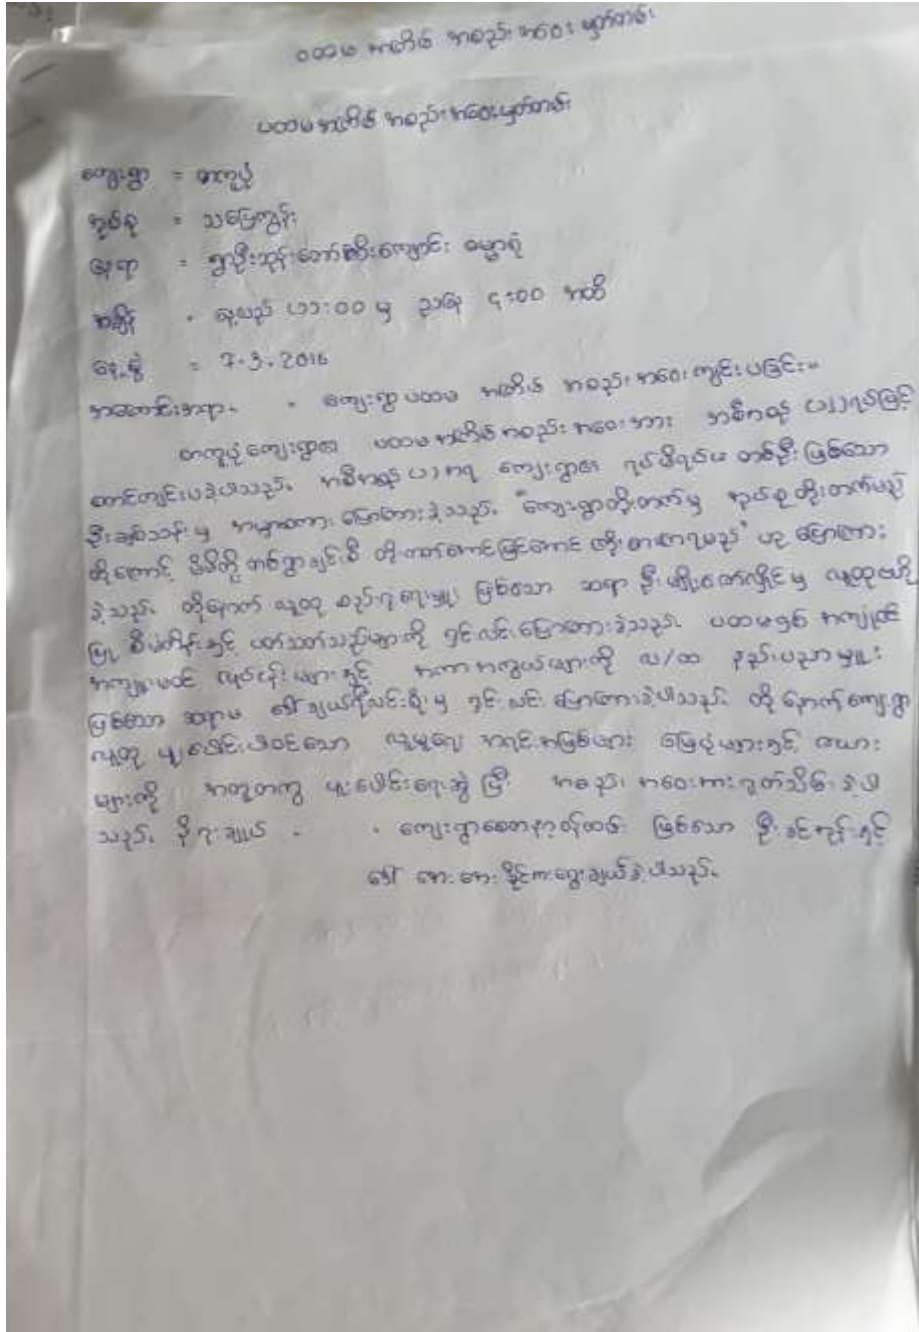 ပထမ အကြိမ် အစည်း အဝေး မှတ်တမ်း
ပထမ အကြိမ် အစည်း အဝေး မှတ်တမ်း
ကျေးရွာ =
အုပ်စု = သမြေကျွန်း
နေရာ = ရွာဦးဘုန်းတော်ကြီးကျောင်း ဓမ္မာရုံ
အချိန် - နေ့လည် ၁၁:၀၀ မှ ညနေ ၄:၀၀ အထိ
နေ့စွဲ = 7.3.2016
အကြောင်းအရာ - ကျေးရွာ ပထမ အကြိမ် အစည်း အဝေး ကျင်းပခြင်း။
ကျေးရွာ၏ ပထမ အကြိမ် အစည်း အဝေးအား အစီအစဉ် ရပ်ဖြင့်
ကျင်းပခဲ့ပါသည်။ အစီအစဉ် (၁) အရ ကျေးရွာ၏ ရပ်မိရပ်ဖ တစ်ဦး ဖြစ်သော
ဦးချစ်သန်း မှ အမှာစကား ပြောကြားခဲ့သည်။ "ကျေးရွာတိုးတက်မှ နယ်စု တိုးတက်မည်
ထို့ကြောင့် မိမိတို့ တစ်ရွာချင်းစီ တိုးတက်အောင်မြင်အောင် ကြိုးစားကြရမည်" ဟု ပြောကြား
ခဲ့သည်။ ထို့နောက် လူထု စည်းရုံးရေးမှူး ဖြစ်သော ဆရာ ဦးမျိုးဇော်လှိုင် မှ လူထုဗဟို
ပြု စီမံကိန်းနှင့် ပတ်သတ်သည်များကို ရှင်းလင်းပြောကြားခဲ့သည်။ ပထမနှစ် အကျုံးဝင်
အကျုံးမဝင် လုပ်ငန်းများနှင့် အကာအကွယ်များကို လ/ထ နည်းပညာမှူး
ဖြစ်သော ဆရာမ ဒေါ် မှ ရှင်းလင်း ပြောကြားခဲ့ပါသည်။ ထို့နောက် ကျေးရွာ
လူထု ပူးပေါင်းပါဝင်သော လူမှုရေး အရင်းအမြစ်များ မြေပုံများနှင့် ဇယား
များကို အတူတကွ ပူးပေါင်းရေးဆွဲပြီး အစည်း အဝေးအား ရုတ်သိမ်းခဲ့ပါ
သည်။ - ကျေးရွာစေတနာ့ဝန်ထမ်း ဖြစ်သော ဦး နှင့်
ဒေါ် ရွေးချယ်ခဲ့ပါသည်။